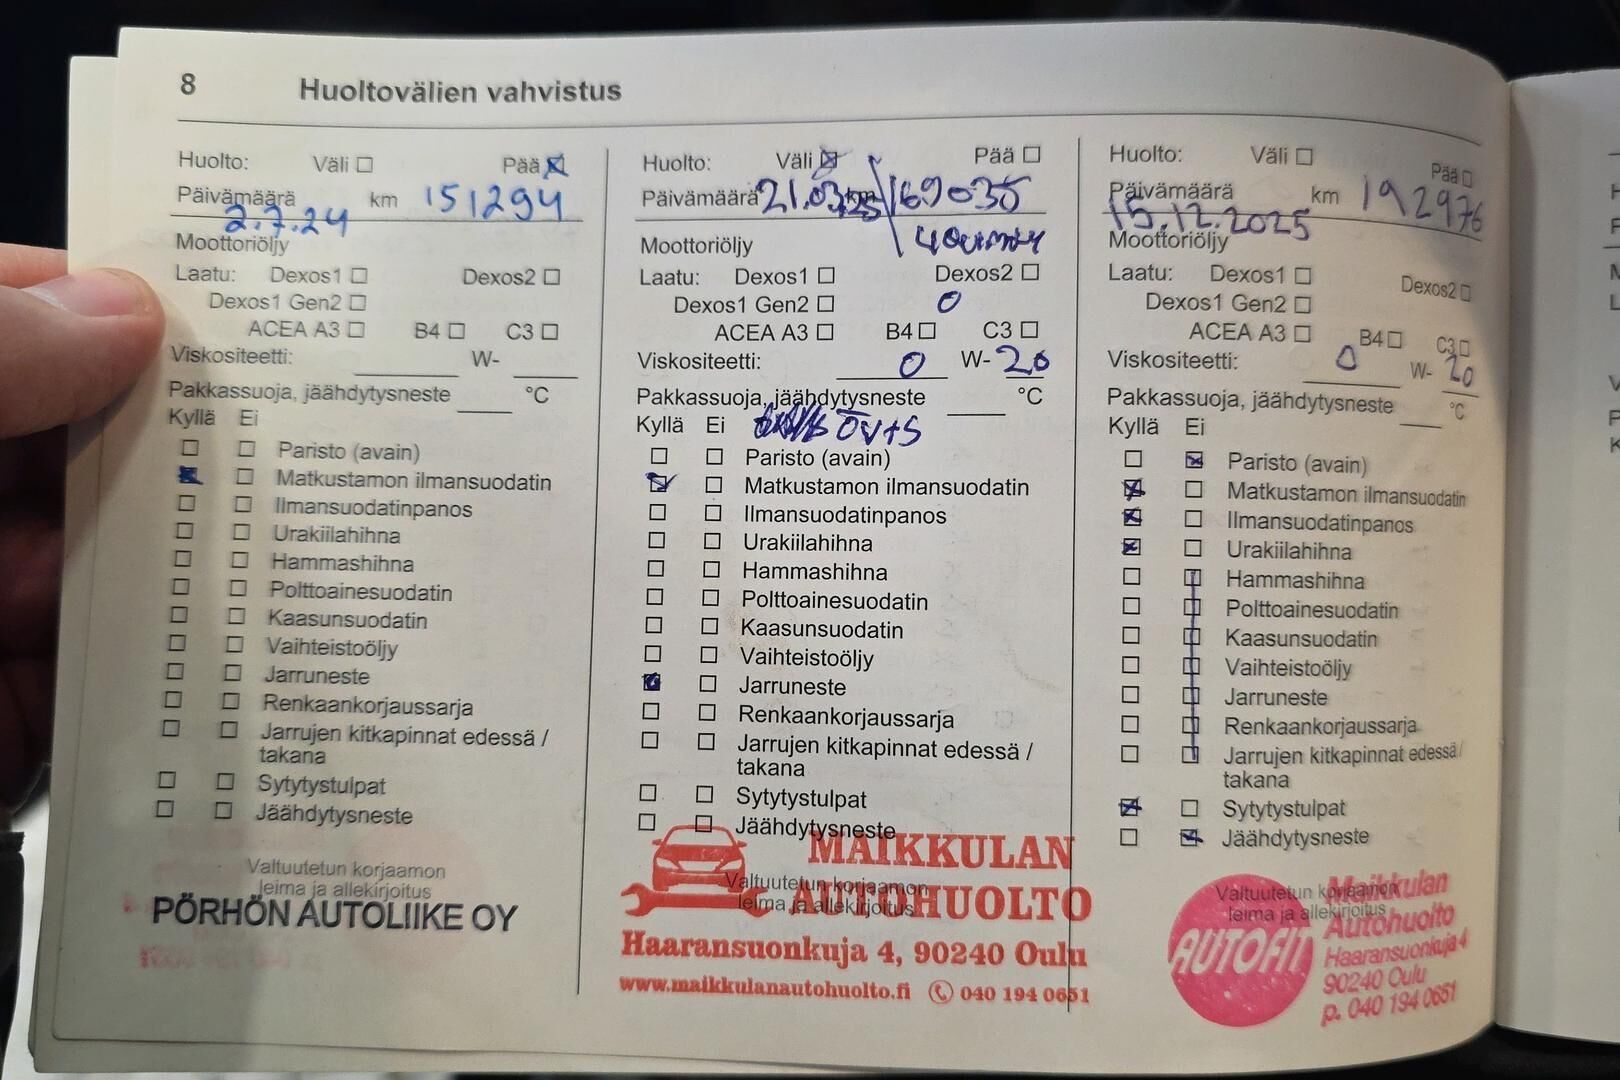 8 Huoltovälien vahvistus
Huolto: Väli Pää
Päivämäärä km 151294
2.7.24
Moottoriöljy
Laatu: Dexos1 Dexos2
Dexos1 Gen2
ACEA A3 B4 C3
Viskositeetti: W-
Pakkassuoja, jäähdytysneste °C
Kyllä Ei
Paristo (avain)
Matkustamon ilmansuodatin
Ilmansuodatinpanos
Urakiilahihna
Hammashihna
Polttoainesuodatin
Kaasunsuodatin
Vaihteistoöljy
Jarruneste
Renkaankorjaussarja
Jarrujen kitkapinnat edessä /
takana
Sytytystulpat
Jäähdytysneste
Valtuutetun korjaamon
leima ja allekirjoitus
PÖRHÖN AUTOLIIKE OY
Huolto: Väli Pää
Päivämäärä 21.03.25 km 169035
Moottoriöljy
Laatu: Dexos1 Dexos2
Dexos1 Gen2 0
ACEA A3 B4 C3
Viskositeetti: 0 W-20
Pakkassuoja, jäähdytysneste °C
Kyllä Ei
Paristo (avain)
Matkustamon ilmansuodatin
Ilmansuodatinpanos
Urakiilahihna
Hammashihna
Polttoainesuodatin
Kaasunsuodatin
Vaihteistoöljy
Jarruneste
Renkaankorjaussarja
Jarrujen kitkapinnat edessä /
takana
Sytytystulpat
Jäähdytysneste
Valtuutetun korjaamon
leima ja allekirjoitus
MAIKKULAN
AUTOHUOLTO
Haaransuonkuja 4, 90240 Oulu
www.maikkulanautohuolto.fi 040 194 0651
Huolto: Väli Pää
Päivämäärä km 192976
15.12.2025
Moottoriöljy
Laatu: Dexos1 Dexos2
Dexos1 Gen2
ACEA A3 B4 C3
Viskositeetti: 0 W-20
Pakkassuoja, jäähdytysneste °C
Kyllä Ei
Paristo (avain)
Matkustamon ilmansuodatin
Ilmansuodatinpanos
Urakiilahihna
Hammashihna
Polttoainesuodatin
Kaasunsuodatin
Vaihteistoöljy
Jarruneste
Renkaankorjaussarja
Jarrujen kitkapinnat edessä /
takana
Sytytystulpat
Jäähdytysneste
Valtuutetun korjaamon
leima ja allekirjoitus
AUTOFIT
Maikkulan
Autohuolto
Haaransuonkuja 4
90240 Oulu
p. 040 194 0651